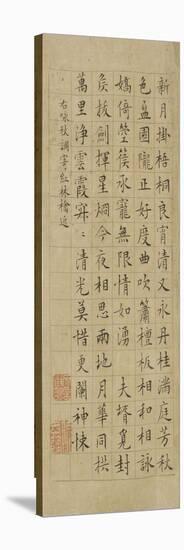 新月掛梧桐良宵清又永丹桂滿庭芳秋
色盈園隴正好度曲吹簫檀板相和相詠
嬌倚瑩篌承寵無限情如湧　夫壻覓封
侯拔劍揮星爛今夜相思兩地月華同拱
萬里淨雲霞寐寐清光莫惜更闌神悚
右詠秋調寄紅林檎近